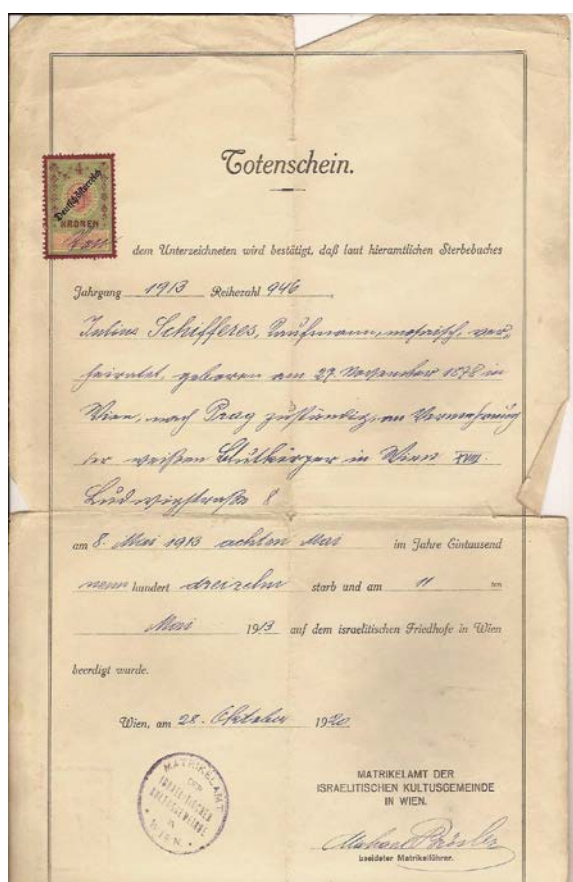 Totenschein.
4
Deutschösterreich
KRONEN
Von dem Unterzeichneten wird bestätigt, daß laut hieramtlichen Sterbebuches
Jahrgang 1913 Reihezahl 946,
Julius Schifferes, Kaufmann, mosaisch, ver¬
heiratet, geboren am 27. November 1878 in
Wien, nach Prag zuständig, an Vermehrung
der weißen Blutkörper in Wien XVIII.
Ludwigstraße 8
am 8. Mai 1913 achten Mai im Jahre Eintausend
neun hundert dreizehn starb und am 11 ten
Mai 1913 auf dem israelitischen Friedhofe in Wien
beerdigt wurde.
Wien, am 28. Oktober 1920
MATRIKELAMT
DER
ISRAELITISCHEN
KULTUSGEMEINDE
IN
WIEN.
MATRIKELAMT DER
ISRAELITISCHEN KULTUSGEMEINDE
IN WIEN.
beeideter Matrikelführer.